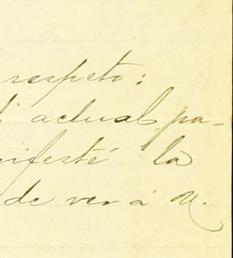 respeto:
l actual pa-
nifesté la
de ver á U.